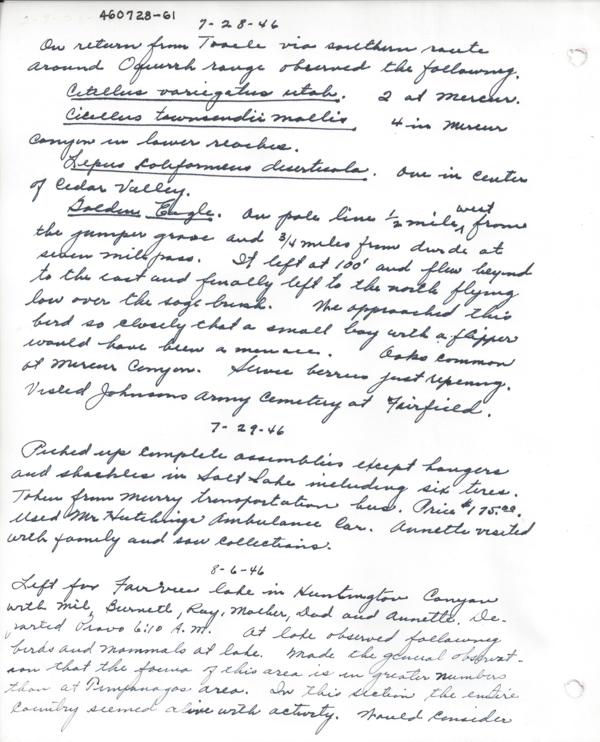 460728-61
7-28-46
On return from Tooele via southern route
around Oquirrh range observed the following.
Citellus variegatus utah. 2 at Mercur.
Citellus townsendii mollis 4 in Mercur
Canyon in lower reaches.
Lepus californicus deserticola. One in center
of Cedar Valley.
Golden Eagle. On pole line 1/2 mile west from
the juniper grove and 3/4 miles from divide at
seven mile pass. It left at 100' and flew beyond
to the east and finally left to the north flying
low over the sage brush. We approached this
bird so closely that a small boy with a flipper
would have been a menace. Oaks common
at Mercur Canyon. Service berries just ripening.
Visted Johnsons Army Cemetery at Fairfield.
7-29-46
Picked up complete assemblies except hangers
and shackles in Salt Lake including six tires.
Taken from Murry transportation bus. Price $175.00.
Used Mr Hutchings Ambulance Car. Annette visited
with family and saw collections.
8-6-46
Left for Fairview lake in Huntington Canyon
with Mil, Burneth, Ray, Mother, Dad and Annette. De-
parted Provo 6:10 A.M. At lake observed following
birds and mammals at lake. Made the general observat-
ion that the fauna of this area is in greater numbers
than at Timpanagos area. In this section the entire
country seemed alive with activity. Would consider